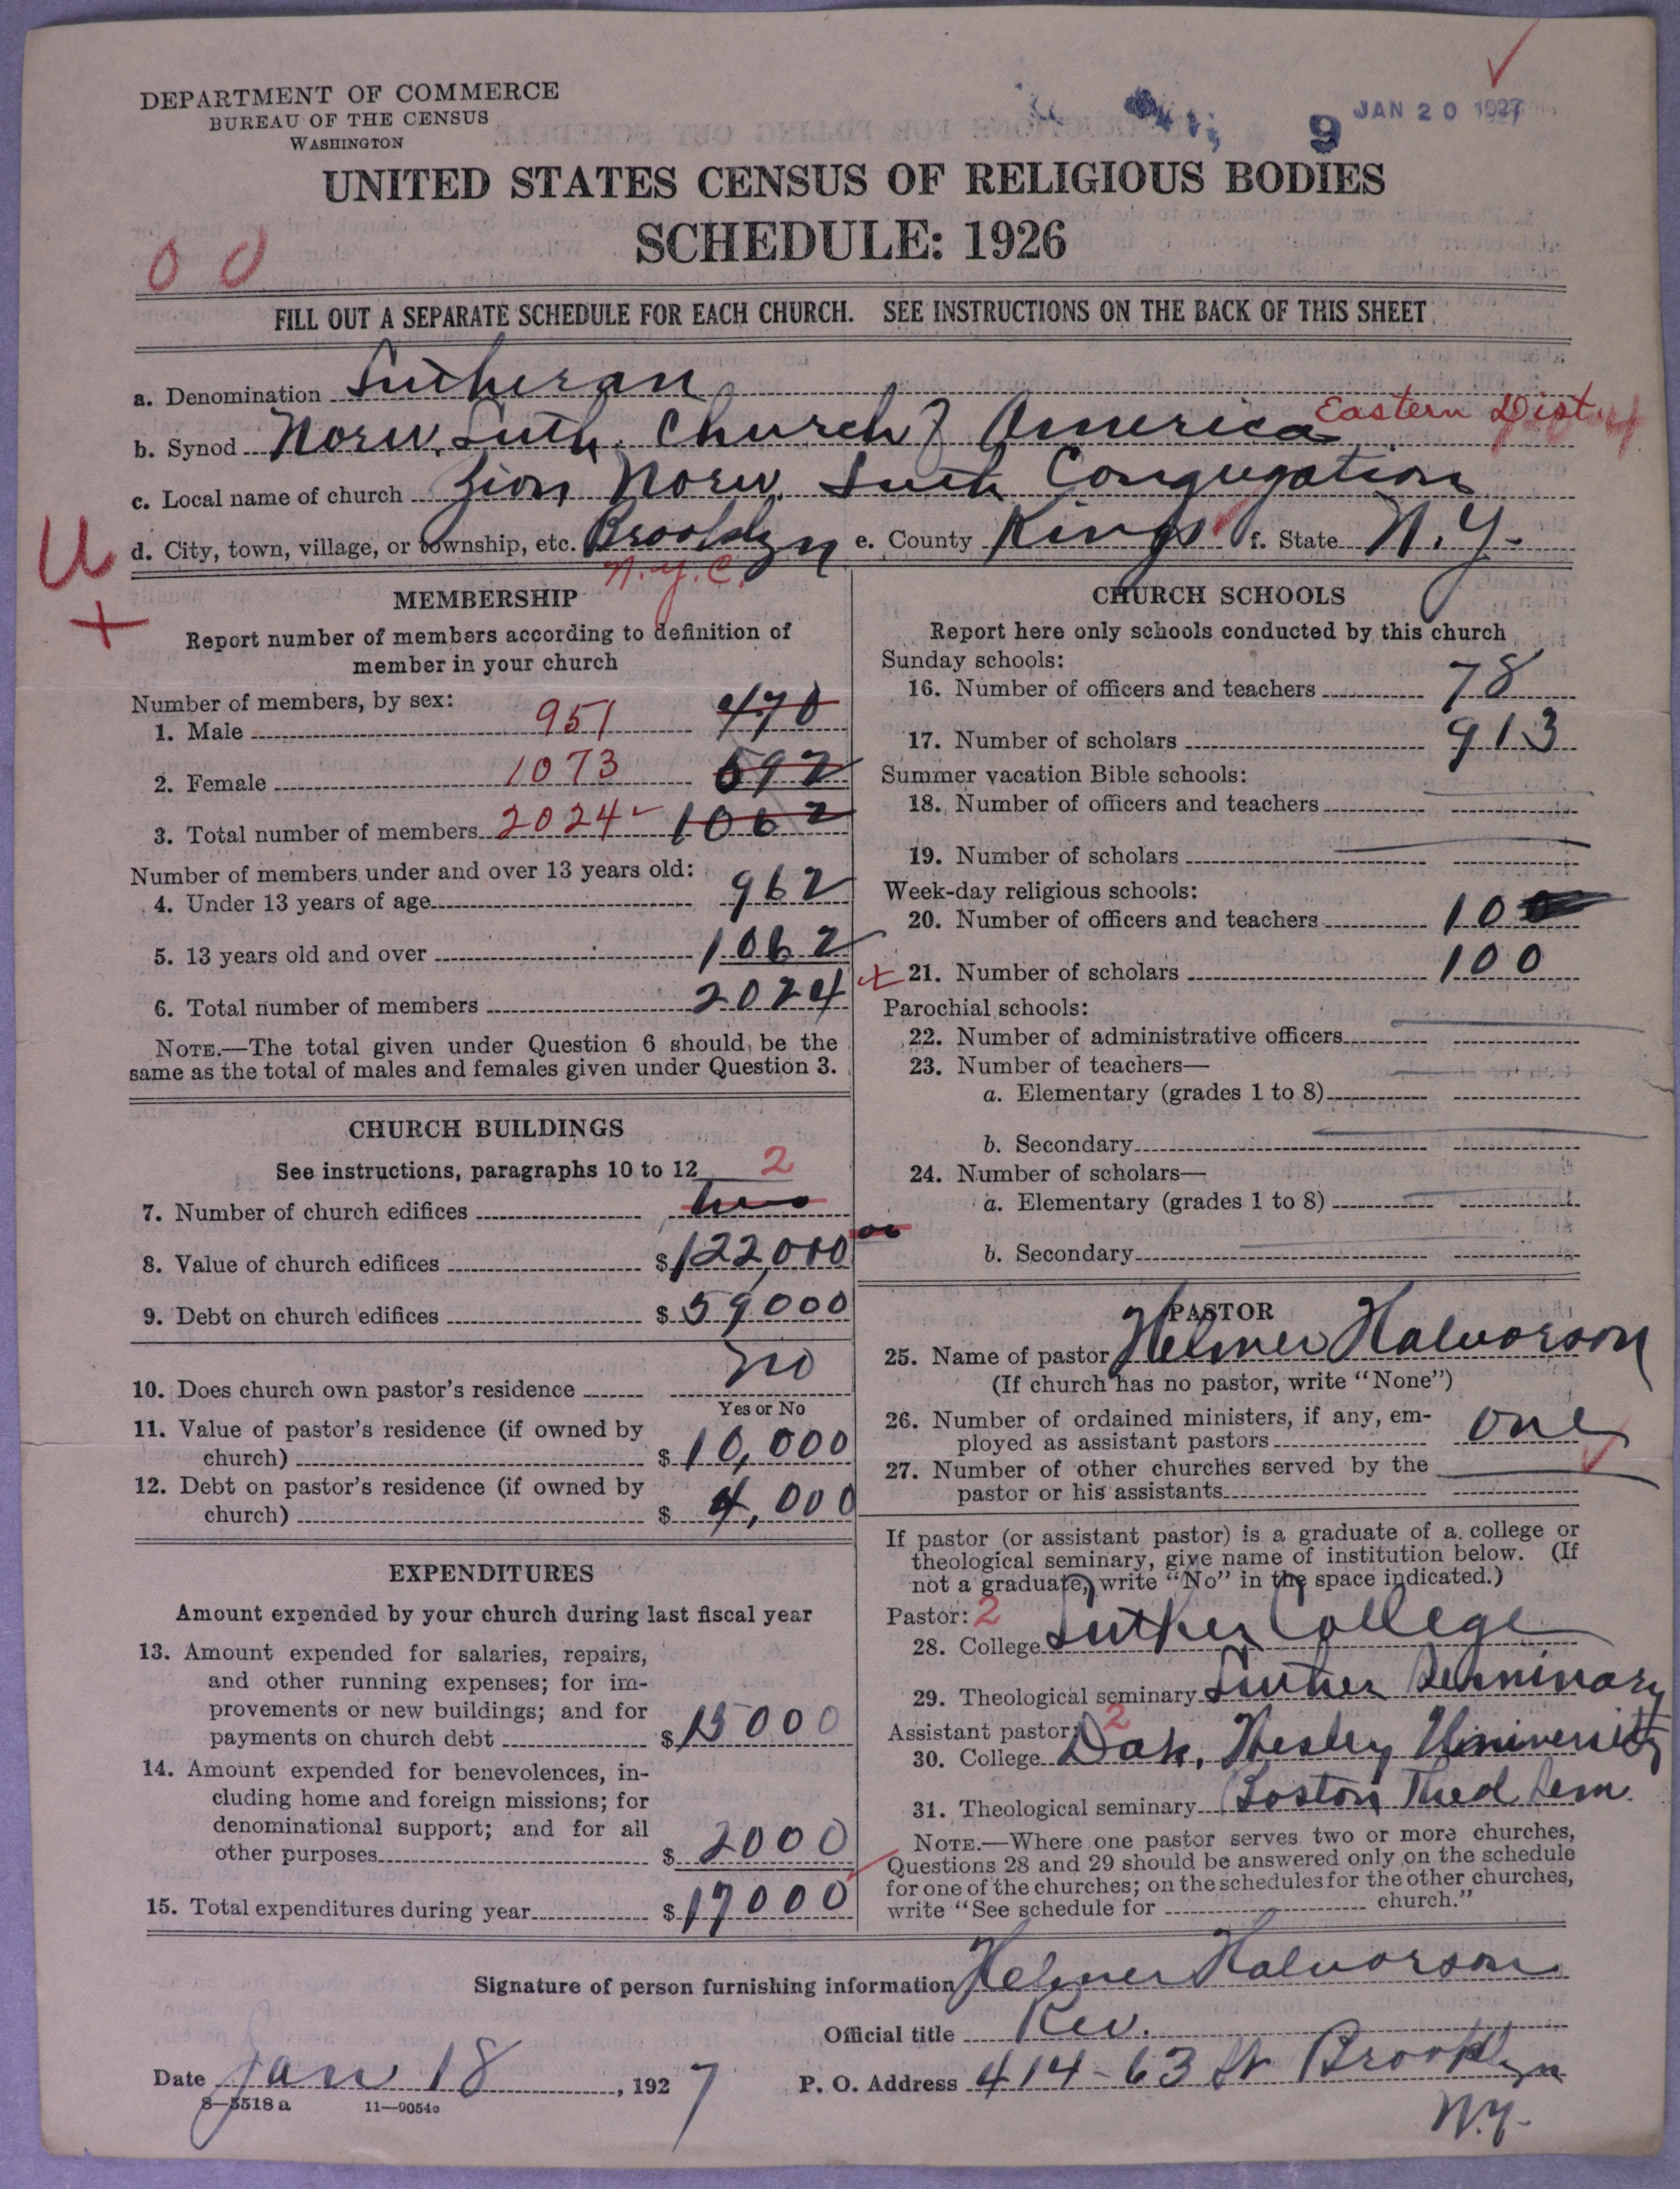 DEPARTMENT OF COMMERCE
BUREAU OF THE CENSUS
WASHINGTON
9 JAN 20 1927
UNITED STATES CENSUS OF RELIGIOUS BODIES
SCHEDULE: 1926
0 0
FILL OUT A SEPARATE SCHEDULE FOR EACH CHURCH. SEE INSTRUCTIONS ON THE BACK OF THIS SHEET
a. Denomination Lutheran
b. Synod Norw. Luth. Church of America Eastern Dist
c. Local name of church Zion Norw. Luth Congregation
d. City, town, village, or township, etc. Brooklyn e. County Kings f. State N.Y.
N.Y.C.
U
+
MEMBERSHIP
Report number of members according to definition of
member in your church
Number of members, by sex:
1. Male 951 470
2. Female 1073 592
3. Total number of members 2024 1062
Number of members under and over 13 years old:
4. Under 13 years of age 962
5. 13 years old and over 1062
6. Total number of members 2024
NOTE.—The total given under Question 6 should be the
same as the total of males and females given under Question 3.
CHURCH BUILDINGS
See instructions, paragraphs 10 to 12 2
7. Number of church edifices two
8. Value of church edifices $122,000
9. Debt on church edifices $59000
10. Does church own pastor's residence no
Yes or No
11. Value of pastor's residence (if owned by
church) $10,000
12. Debt on pastor's residence (if owned by
church) $4,000
EXPENDITURES
Amount expended by your church during last fiscal year
13. Amount expended for salaries, repairs,
and other running expenses; for im-
provements or new buildings; and for
payments on church debt $15000
14. Amount expended for benevolences, in-
cluding home and foreign missions; for
denominational support; and for all
other purposes $2000
15. Total expenditures during year $17000
CHURCH SCHOOLS
Report here only schools conducted by this church
Sunday schools:
16. Number of officers and teachers 78
17. Number of scholars 913
Summer vacation Bible schools:
18. Number of officers and teachers
19. Number of scholars
Week-day religious schools:
20. Number of officers and teachers 10
21. Number of scholars 100
Parochial schools:
22. Number of administrative officers
23. Number of teachers—
a. Elementary (grades 1 to 8)
b. Secondary
24. Number of scholars—
a. Elementary (grades 1 to 8)
b. Secondary
PASTOR
25. Name of pastor Helmer Halvorson
(If church has no pastor, write "None")
26. Number of ordained ministers, if any, em-
ployed as assistant pastors one
27. Number of other churches served by the
pastor or his assistants
If pastor (or assistant pastor) is a graduate of a college or
theological seminary, give name of institution below. (If
not a graduate, write "No" in the space indicated.)
Pastor: 2
28. College Luther College
29. Theological seminary Luther Seminary
Assistant pastor: 2
30. College Dak. Wesley University
31. Theological seminary Boston Theol Sem.
NOTE.—Where one pastor serves two or more churches,
Questions 28 and 29 should be answered only on the schedule
for one of the churches; on the schedules for the other churches,
write "See schedule for church."
Signature of person furnishing information Helmer Halvorson
Official title Rev.
Date Jan 18, 1927 P. O. Address 414-63 St Brooklyn
N.Y.
8—5518 a 11—9054c